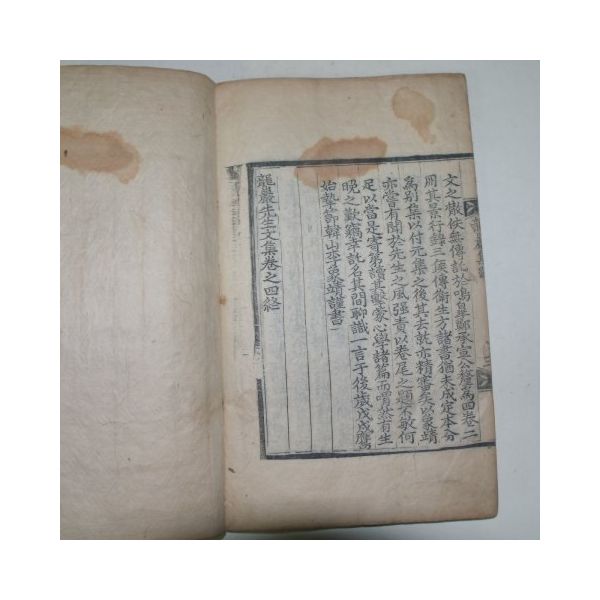 文之散佚無傳託於鳴皐鄭承宣公釐爲四卷二
冊其景行錄三侯傳衛生方諸書猶未成定本分
爲別集以付元集之後其去就亦精審矣以象靖
亦嘗有聞於先生之風强責以卷尾之題不敢何
足以當是寄第讀其擊蒙心學諸篇而喟然有生
晚之歎竊幸託名其間聊識一言于後歲戊戌鷹
始摯節韓山李象靖謹書
龍巖先生文集卷之四終